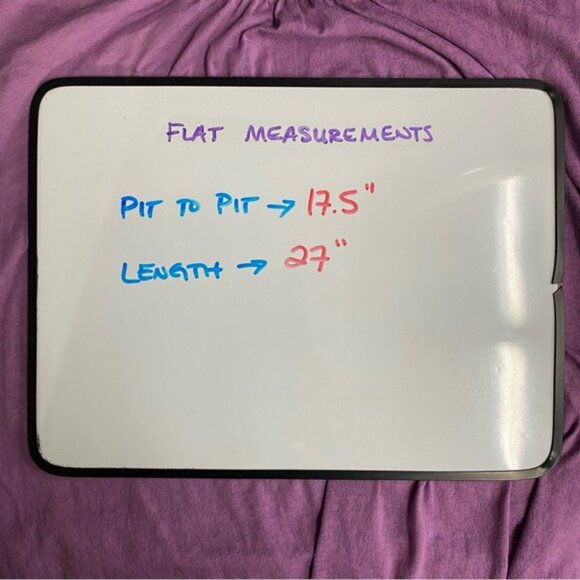 FLAT MEASUREMENTS
PIT TO PIT → 17.5"
LENGTH → 27"